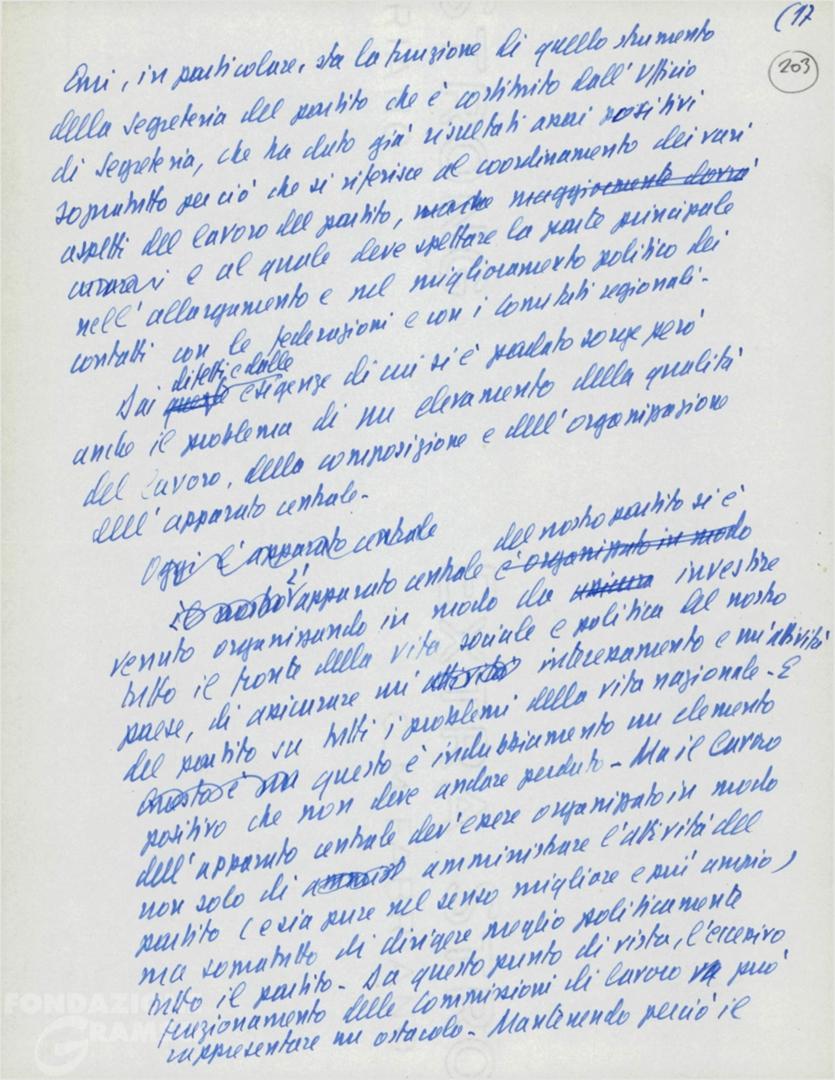 (17
203
Qui, in particolare, sta la funzione di quello strumento
della segreteria del partito che è costituito dall'Ufficio
di segreteria, che ha dato già risultati assai positivi
sopratutto per ciò che si riferisce al coordinamento dei vari
aspetti del lavoro del partito, maggiormente dovrà
e al quale deve spettare la parte principale
nell'allargamento e nel miglioramento politico dei
contatti con le federazioni e con i comitati regionali.
difetti e dalle
Dai queste esigenze di cui si è parlato sorge però
anche il problema di un elevamento della qualità
del lavoro, della composizione e dell'organizzazione
dell'apparato centrale.
Oggi l'apparato centrale
del nostro partito si è
il nostro L'apparato centrale è organizzato in modo
venuto organizzando in modo da assicura investire
tutto il fronte della vita sociale e politica del nostro
paese, di assicurare un' attività interessamento e un'attività
del partito su tutti i problemi della vita nazionale. E
questo è una questo è indubbiamente un elemento
positivo che non deve andare perduto. Ma il lavoro
dell'apparato centrale dev'essere organizzato in modo
non solo di amminist amministrare l'attività del
partito (e sia pure nel senso migliore e più ampio)
ma sopratutto di dirigere meglio politicamente
tutto il partito. Da questo punto di vista, l'eccessivo
funzionamento delle Commissioni di lavoro può
rappresentare un ostacolo. Mantenendo perciò il
FONDAZIONE
GRAMSCI